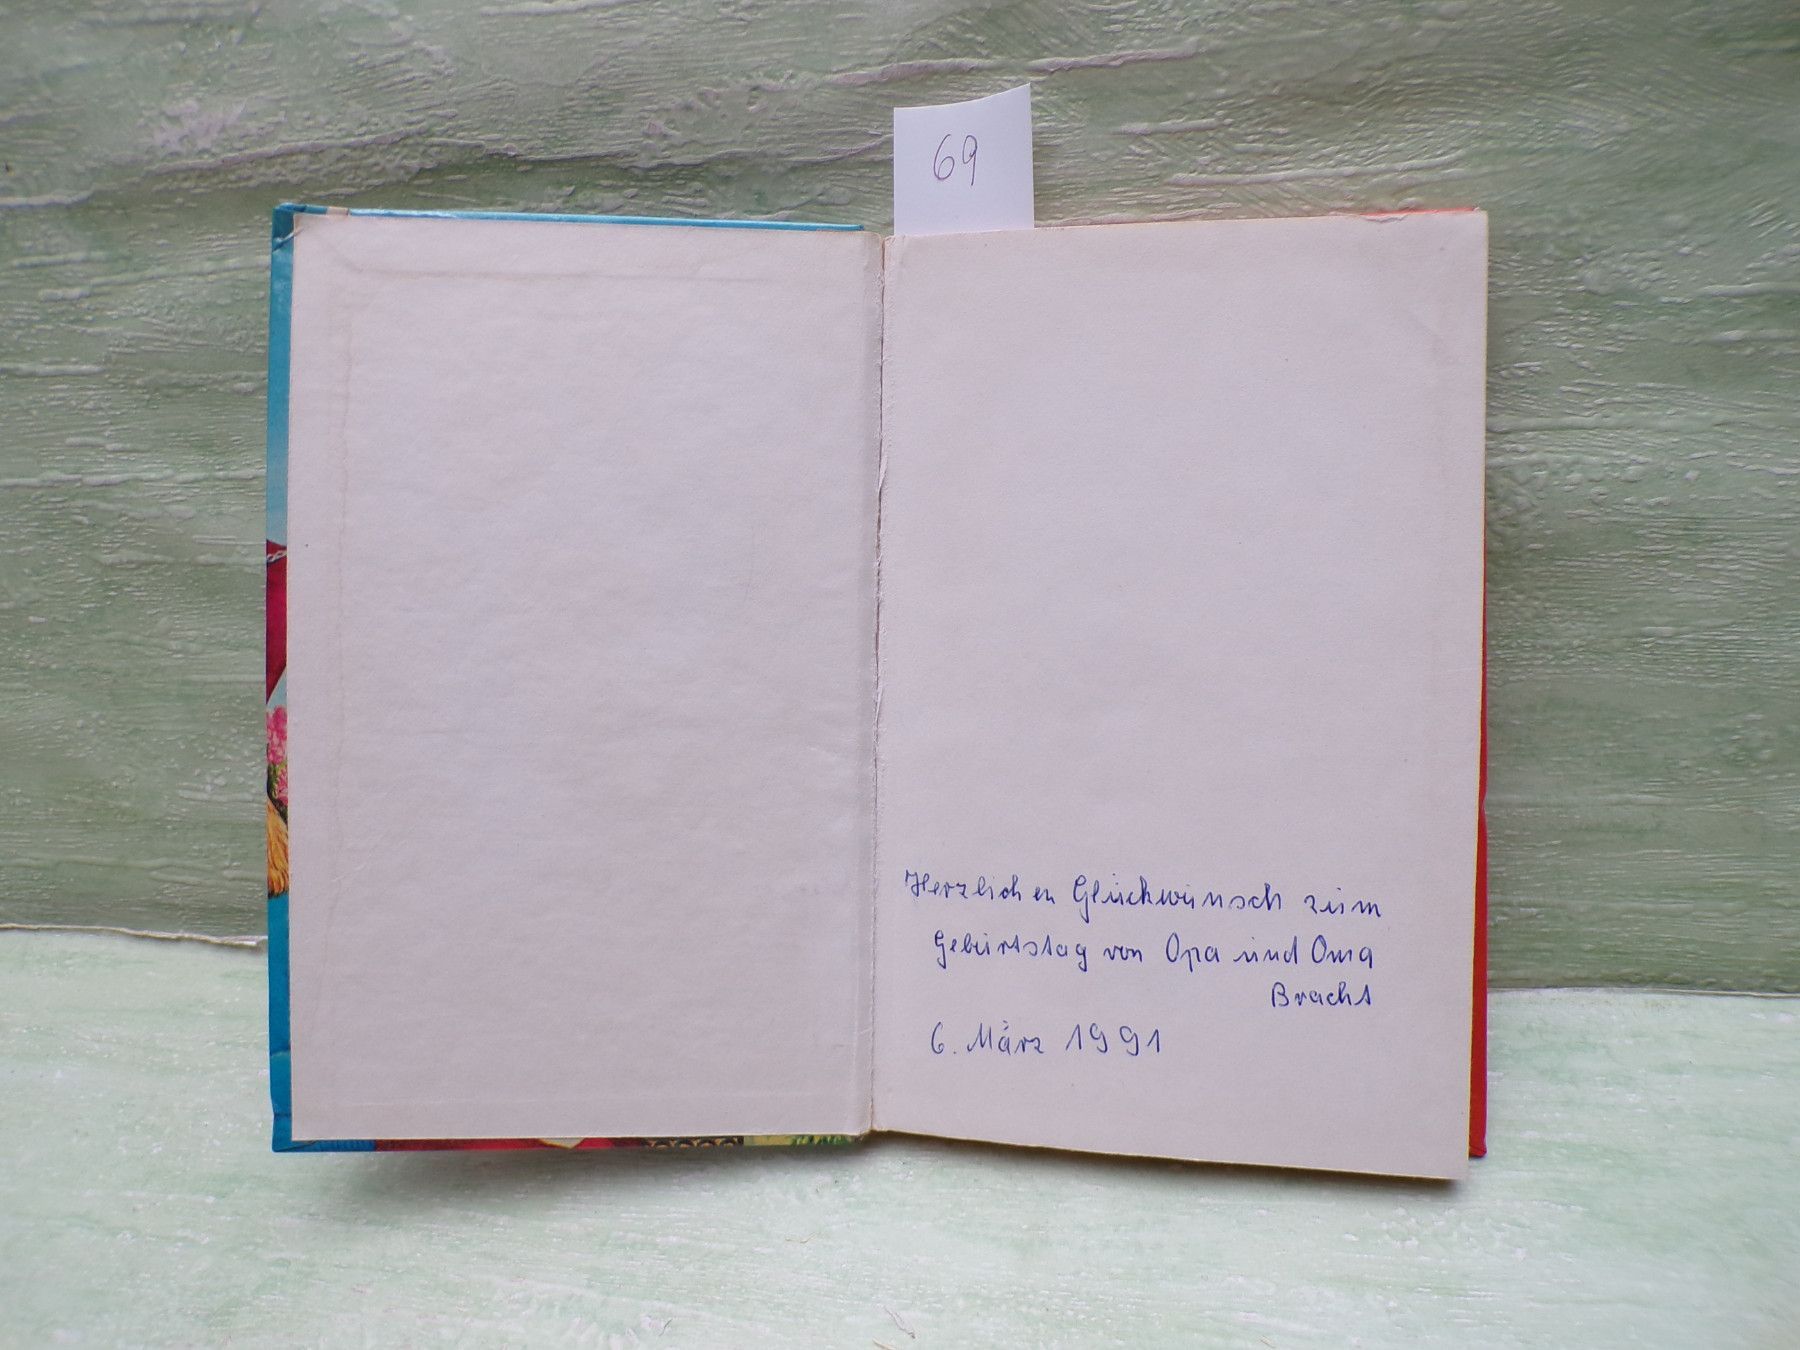 69
Herzlichen Glückwunsch zum
Geburtstag von Opa und Oma
Bracht
6. März 1991